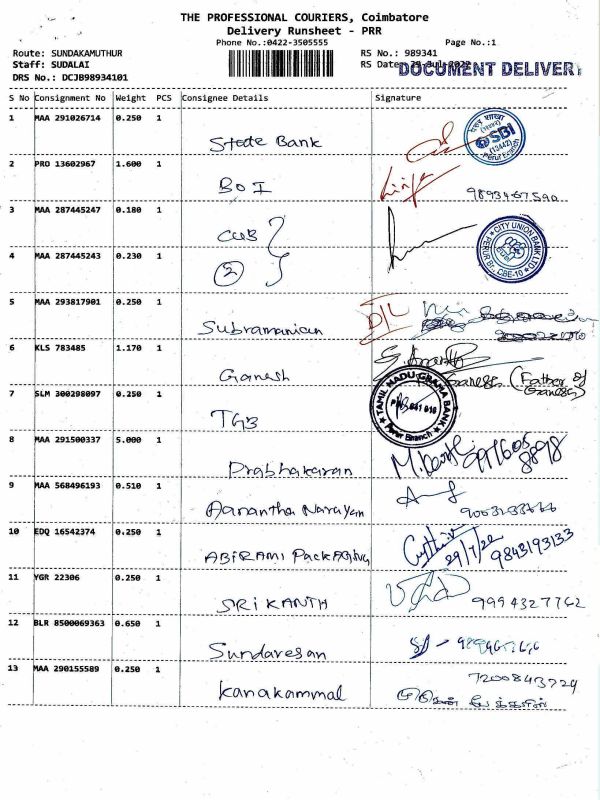 THE PROFESSIONAL COURIERS, Coimbatore
Delivery Runsheet - PRR
Phone No.:0422-3505555 Page No.:1
Route: SUNDAKAMUTHUR RS No.: 989341
Staff: SUDALAI RS Date: DOCUMENT DELIVER
DRS No.: DCJB98934101
S No Consignment No Weight PCS Consignee Details Signature
1 MAA 291026714 0.250 1 State Bank SBI (13442)
2 PRO 13602967 1.600 1 BOI
3 MAA 287445247 0.180 1 CUB CITY UNION BANK LTD PERUR Br., CBE-10
4 MAA 287445243 0.230 1 2
5 MAA 293817901 0.250 1 Subramanian D/L
6 KLS 783485 1.170 1 Ganesh (Father of Ganesh)
7 SLM 300298097 0.250 1 TGB TAMIL NADU GRAMA BANK Perur Branch
8 MAA 291500337 5.000 1 Prabhakaran
9 MAA 568496193 0.510 1 Aanantha Narayan
10 EDQ 16542374 0.250 1 ABIRAMI PackAging 29/7/22 9843193133
11 YGR 22306 0.250 1 SRIKANTH 9994327762
12 BLR 8500069363 0.650 1 Sundaresan
13 MAA 290155589 0.250 1 Kanakammal 7200843729